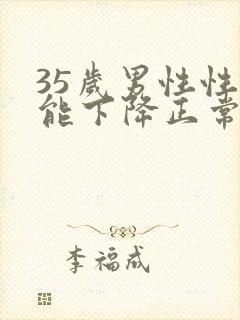 35岁男性性
能下降正常
李福成